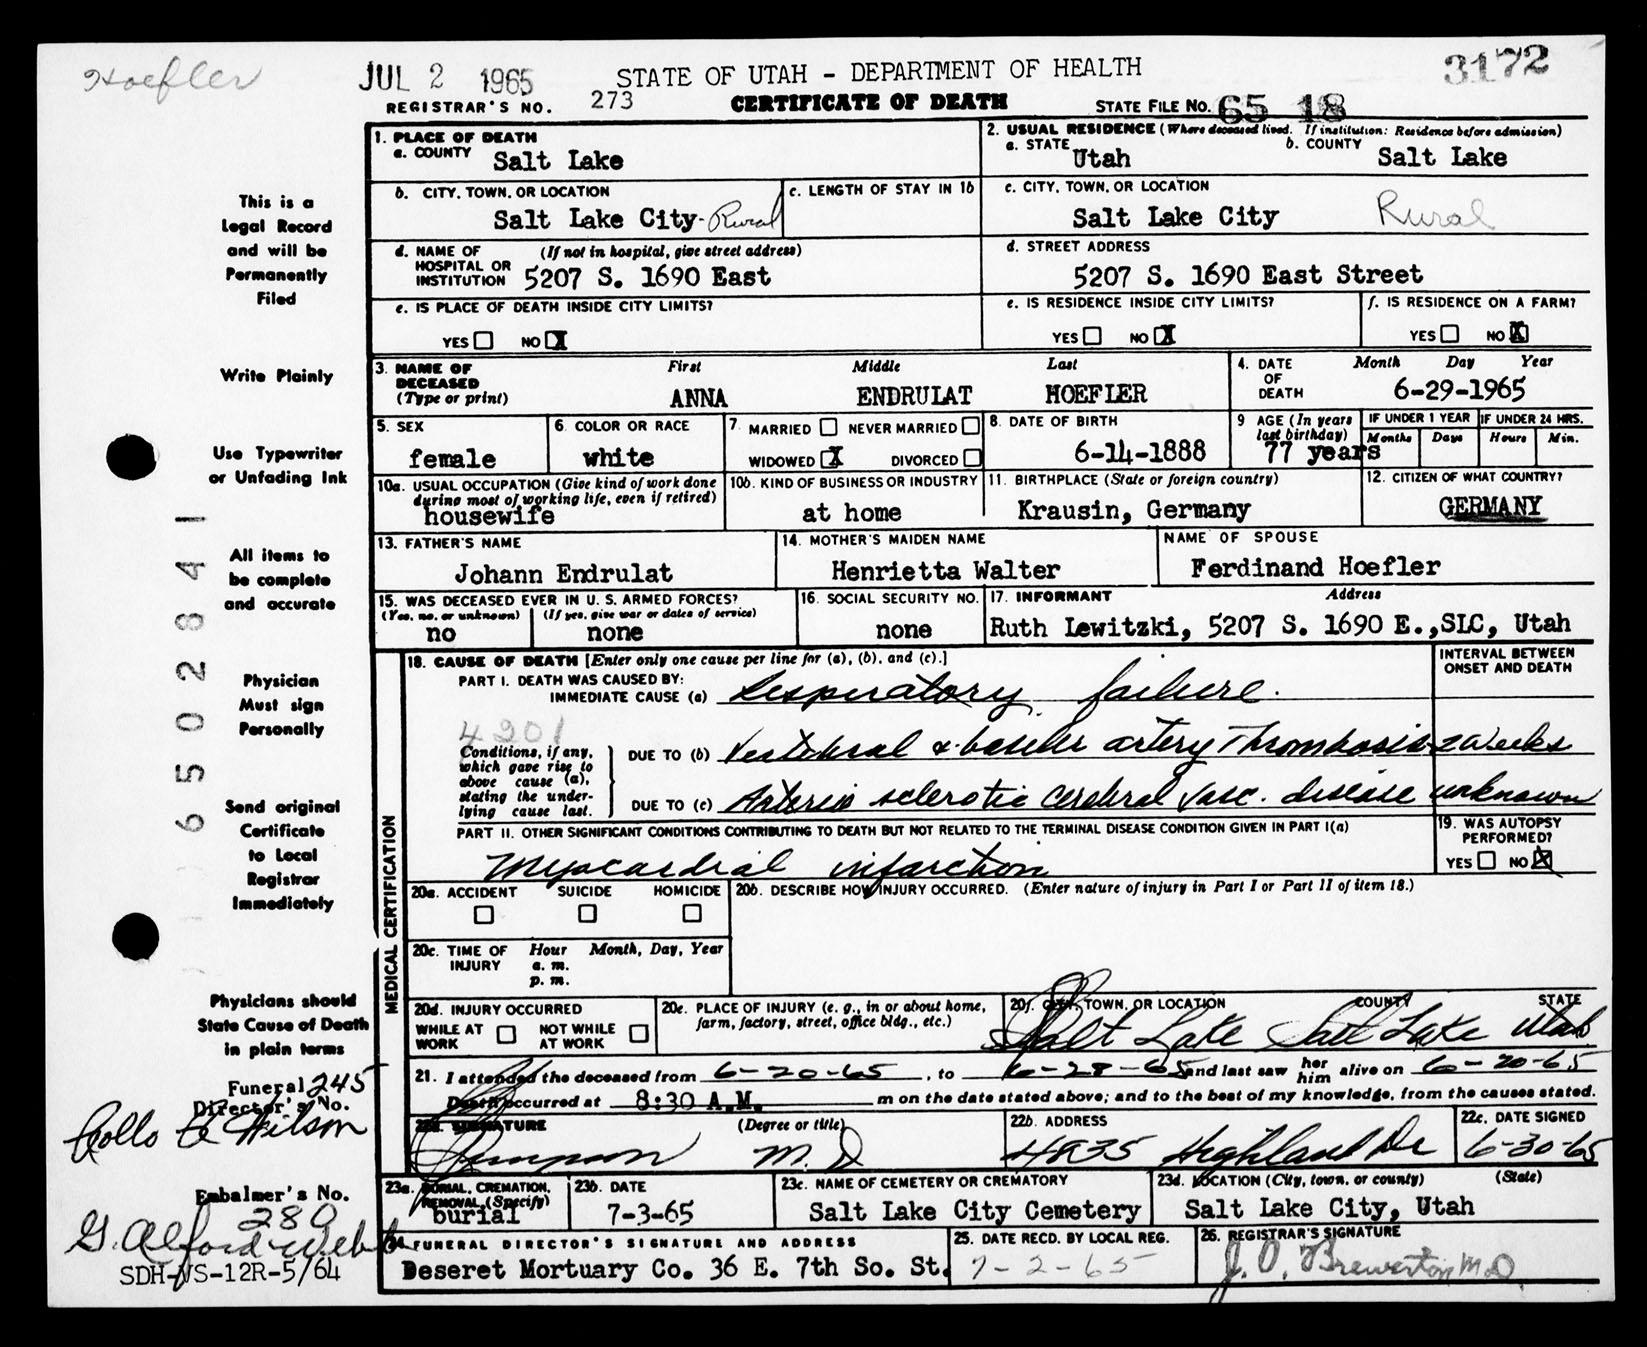 Hoefler
JUL 2 1965 STATE OF UTAH - DEPARTMENT OF HEALTH 3172
REGISTRAR'S NO. 273 CERTIFICATE OF DEATH STATE FILE NO. 65 18
1. PLACE OF DEATH
a. COUNTY Salt Lake
2. USUAL RESIDENCE (Where deceased lived. If institution: Residence before admission)
a. STATE Utah b. COUNTY Salt Lake
b. CITY, TOWN, OR LOCATION Salt Lake City-Rural
c. LENGTH OF STAY IN 1b
c. CITY, TOWN, OR LOCATION Salt Lake City Rural
d. NAME OF HOSPITAL OR INSTITUTION (If not in hospital, give street address) 5207 S. 1690 East
d. STREET ADDRESS 5207 S. 1690 East Street
e. IS PLACE OF DEATH INSIDE CITY LIMITS?
YES NO X
e. IS RESIDENCE INSIDE CITY LIMITS?
YES NO X
f. IS RESIDENCE ON A FARM?
YES NO X
3. NAME OF DECEASED (Type or print) First Middle Last
ANNA ENDRULAT HOEFLER
4. DATE OF DEATH Month Day Year
6-29-1965
5. SEX female
6. COLOR OR RACE white
7. MARRIED NEVER MARRIED
WIDOWED X DIVORCED
8. DATE OF BIRTH 6-14-1888
9 AGE (In years last birthday) 77 years
IF UNDER 1 YEAR Months Days
IF UNDER 24 HRS. Hours Min.
10a. USUAL OCCUPATION (Give kind of work done during most of working life, even if retired) housewife
10b. KIND OF BUSINESS OR INDUSTRY at home
11. BIRTHPLACE (State or foreign country) Krausin, Germany
12. CITIZEN OF WHAT COUNTRY? GERMANY
13. FATHER'S NAME Johann Endrulat
14. MOTHER'S MAIDEN NAME Henrietta Walter
NAME OF SPOUSE Ferdinand Hoefler
15. WAS DECEASED EVER IN U. S. ARMED FORCES?
(Yes, no, or unknown) no (If yes, give war or dates of service) none
16. SOCIAL SECURITY NO. none
17. INFORMANT Address
Ruth Lewitzki, 5207 S. 1690 E.,SLC, Utah
MEDICAL CERTIFICATION
18. CAUSE OF DEATH [Enter only one cause per line for (a), (b), and (c).]
INTERVAL BETWEEN ONSET AND DEATH
PART I. DEATH WAS CAUSED BY:
IMMEDIATE CAUSE (a) Respiratory failure.
4201
Conditions, if any, which gave rise to above cause (a), stating the underlying cause last.
DUE TO (b) Vertebral & basilar artery Thrombosis 2 weeks
DUE TO (c) Arterio sclerotic cerebral vasc. disease unknown
PART II. OTHER SIGNIFICANT CONDITIONS CONTRIBUTING TO DEATH BUT NOT RELATED TO THE TERMINAL DISEASE CONDITION GIVEN IN PART I(a)
Myocardial infarction
19. WAS AUTOPSY PERFORMED?
YES NO X
20a. ACCIDENT SUICIDE HOMICIDE
20b. DESCRIBE HOW INJURY OCCURRED. (Enter nature of injury in Part I or Part II of item 18.)
20c. TIME OF INJURY Hour Month, Day, Year
a. m.
p. m.
20d. INJURY OCCURRED
WHILE AT WORK NOT WHILE AT WORK
20e. PLACE OF INJURY (e. g., in or about home, farm, factory, street, office bldg., etc.)
20f. CITY, TOWN, OR LOCATION COUNTY STATE
Salt Lake Salt Lake Utah
21. I attended the deceased from 6-20-65, to 6-28-65 and last saw her him alive on 6-20-65
Death occurred at 8:30 A.M. m on the date stated above; and to the best of my knowledge, from the causes stated.
22a. SIGNATURE (Degree or title) M.D
22b. ADDRESS 4835 Highland Dr
22c. DATE SIGNED 6-30-65
23a. BURIAL, CREMATION, REMOVAL, (Specify) burial
23b. DATE 7-3-65
23c. NAME OF CEMETERY OR CREMATORY Salt Lake City Cemetery
23d. LOCATION (City, town, or county) (State) Salt Lake City, Utah
24 FUNERAL DIRECTOR'S SIGNATURE AND ADDRESS
Deseret Mortuary Co. 36 E. 7th So. St.
25. DATE RECD. BY LOCAL REG. 7-2-65
26. REGISTRAR'S SIGNATURE
J. O. Brewerton M.D.
This is a
Legal Record
and will be
Permanently
Filed
Write Plainly
Use Typewriter
or Unfading Ink
All items to
be complete
and accurate
Physician
Must sign
Personally
Send original
Certificate
to Local
Registrar
Immediately
Physicians should
State Cause of Death
in plain terms
Funeral Director's No. 245
Rollo E Wilson
Embalmer's No.
280
G. Alford Webb
SDH-VS-12R-5/64
6502841